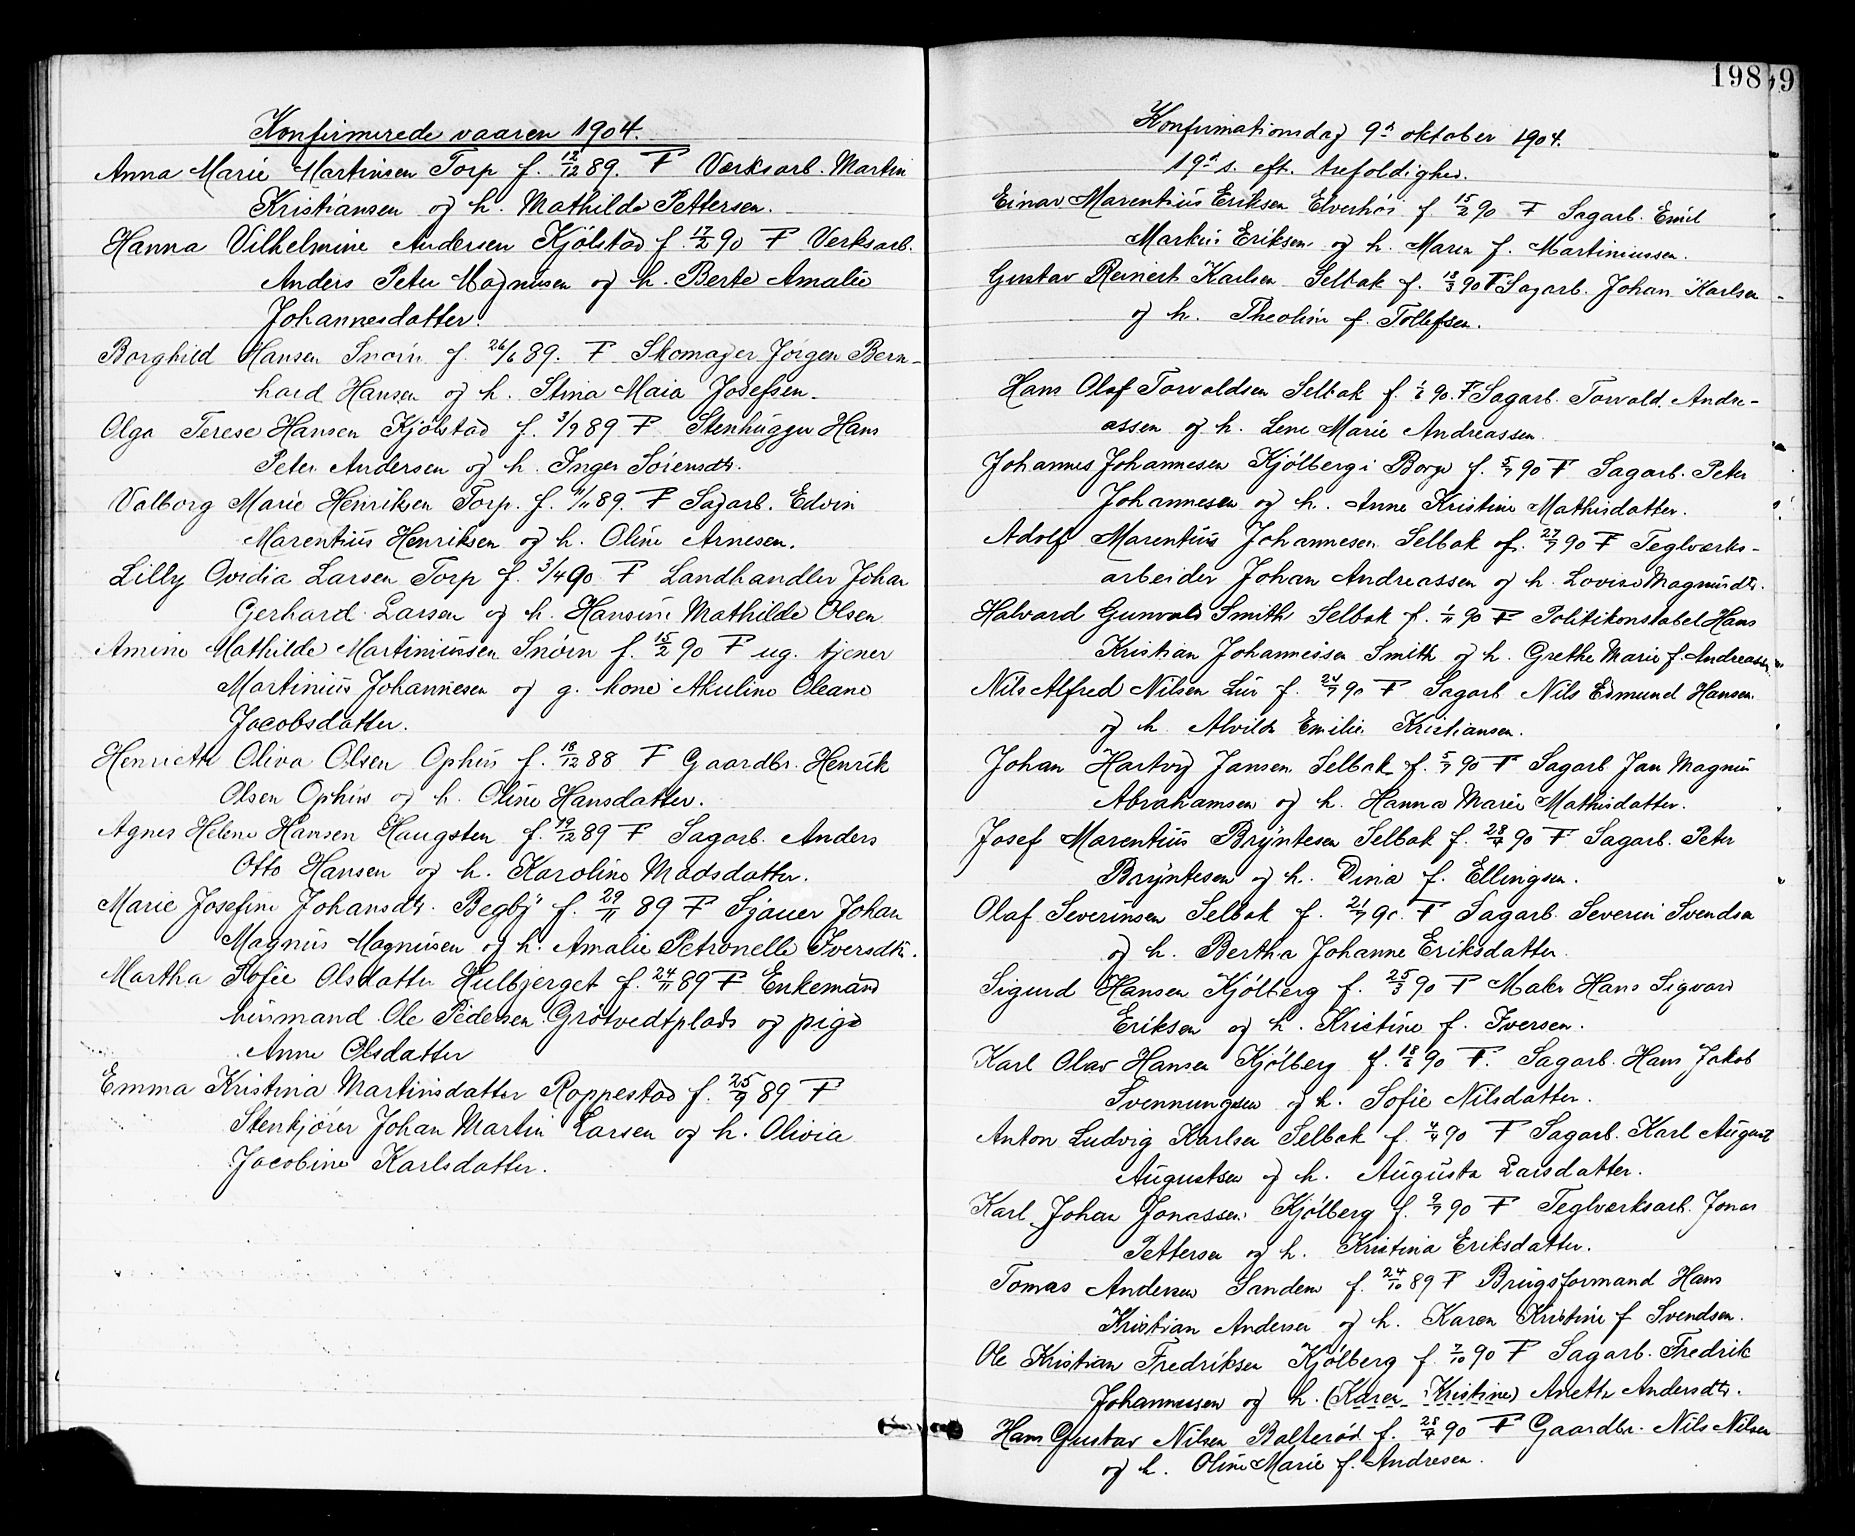 Konfirmerede vaaren 1904.
Anna Marie Martinsen Torp f. 12/12 89. F Værksarb. Martin
Kristiansen og h. Mathilde Pettersen.
Hanna Vilhelmine Andersen Kjölstad f. 17/2 90 F Verksarb.
Anders Peter Magnusen og h. Berte Amalie
Johannesdatter.
Borghild Hansen Snoin f. 26/6 89. F Skomager Jörgen Bern-
hard Hansen og h. Stina Maia Josefsen.
Olga Terese Hansen Kjölstad f. 3/9 89 F Stenhugger Hans
Peter Andersen og h. Inger Sörensdt.
Valborg Marie Henriksen Torp. f. 11/11 89. F Sagarb. Edvin
Marentius Henriksen og h. Oline Arnesen.
Lilly Ovidia Larsen Torp f. 3/4 90 F Landhandler Johan
Gerhard Larsen og h. Hansine Mathilde Olsen
Amine Mathilde Martiniussen Snoin f. 15/2 90 F ug. tjener
Martinius Johannesen og g. kone Akuline Oleane
Jacobsdatter.
Henriette Oliva Olsen Ophus f. 18/12 88 F Gaardbr. Henrik
Olsen Ophus og h. Oline Hansdatter.
Agnes Helene Hansen Haugsten f. 19/12 89 F Sagarb. Anders
Otto Hansen og h. Karoline Madsdatter.
Marie Josefine Johansdt. Begby f. 29/11 89 F Sjauer Johan
Magnus Magnusen og h. Amalie Petronelle Iversdtr.
Martha Sofie Olsdatter Hulbjerget f. 24/11 89 F Enkemand
husmand Ole Pedersen Grötvedtplads og pige
Anne Olsdatter
Emma Kristina Martinsdatter Roppestad f. 25/9 89 F
Stenkjörer Johan Martin Larsen og h. Olivia
Jacobine Karlsdatter.
198
9
Konfirmationsdag 9de oktober 1904.
19de s. eft. trefoldighed.
Einar Marentius Eriksen Elverhöi f. 15/2 90 F Sagarb. Emil
Markus Eriksen og h. Maren f. Martiniussen.
Gustav Reinert Karlsen Selbak f. 13/3 90 F Sagarb. Johan Karlsen
og h. Theoline f. Tollefsen.
Hans Olaf Torvaldsen Selbak f. 1/6 90. F Sagarb. Torvald Andre-
assen og h. Lene Marie Andreassen
Johannes Johannesen Kjölberg i Borge f. 5/7 90 F Sagarb. Peter
Johannesen og h. Anne Kristine Mathisdatter.
Adolf Marentius Johannesen Selbak f. 27/7 90 F Teglværks-
arbeider Johan Andreassen og h. Lovise Magnusdt.
Halvard Gunvald Smith Selbak f. 1/11 90 F Politikonstabel Hans
Kristian Johannessen Smith og h. Grethe Marie f. Andreassen
Nils Alfred Nilsen Lur f. 24/7 90 F Sagarb Nils Edmund Hansen
og h. Alvilde Emilie Kristiansen.
Johan Hartvig Jansen Selbak f. 5/7 90 F Sagarb Jan Magnus
Abrahamsen og h. Hanna Marie Mathisdatter.
Josef Marentius Bryntesen Selbak f. 28/4 90 F Sagarb. Peter
Bryntesen og h. Dina f. Ellingsen.
Olaf Severinsen Selbak f. 21/7 90. F Sagarb. Severin Svendsen
og h. Bertha Johanne Eriksdatter
Sigurd Hansen Kjölberg f. 25/3 90 F Maler Hans Sigvard
Eriksen og h. Kristine f. Iversen.
Karl Olav Hansen Kjölberg f. 18/6 90 F. Sagarb. Hans Jakob
Svenningsen og h. Sofie Nilsdatter.
Anton Ludvig Karlsen Selbak f. 4/4 90 F Sagarb. Karl August
Augustsen og h. Augusta Larsdatter.
Karl Johan Jonassen Kjölberg f. 9/7 90 F Teglverksarb. Jonas
Pettersen og h. Kristina Eriksdatter.
Tomas Andersen Sandem f. 24/10 89 F Brugsformand Hans
Kristian Andersen og h. Karen Kristine f Svendsen.
Ole Kristian Fredriksen Kjölberg f. 7/10 90 F Sagarb. Fredrik
Johannessen og h. (Karen Kristine) Anette Andersdtr.
Hans Gustav Nilsen Balteröd f. 28/4 90 F Gaardbr. Nils Nilsen
og h. Oline Marie f. Andresen.